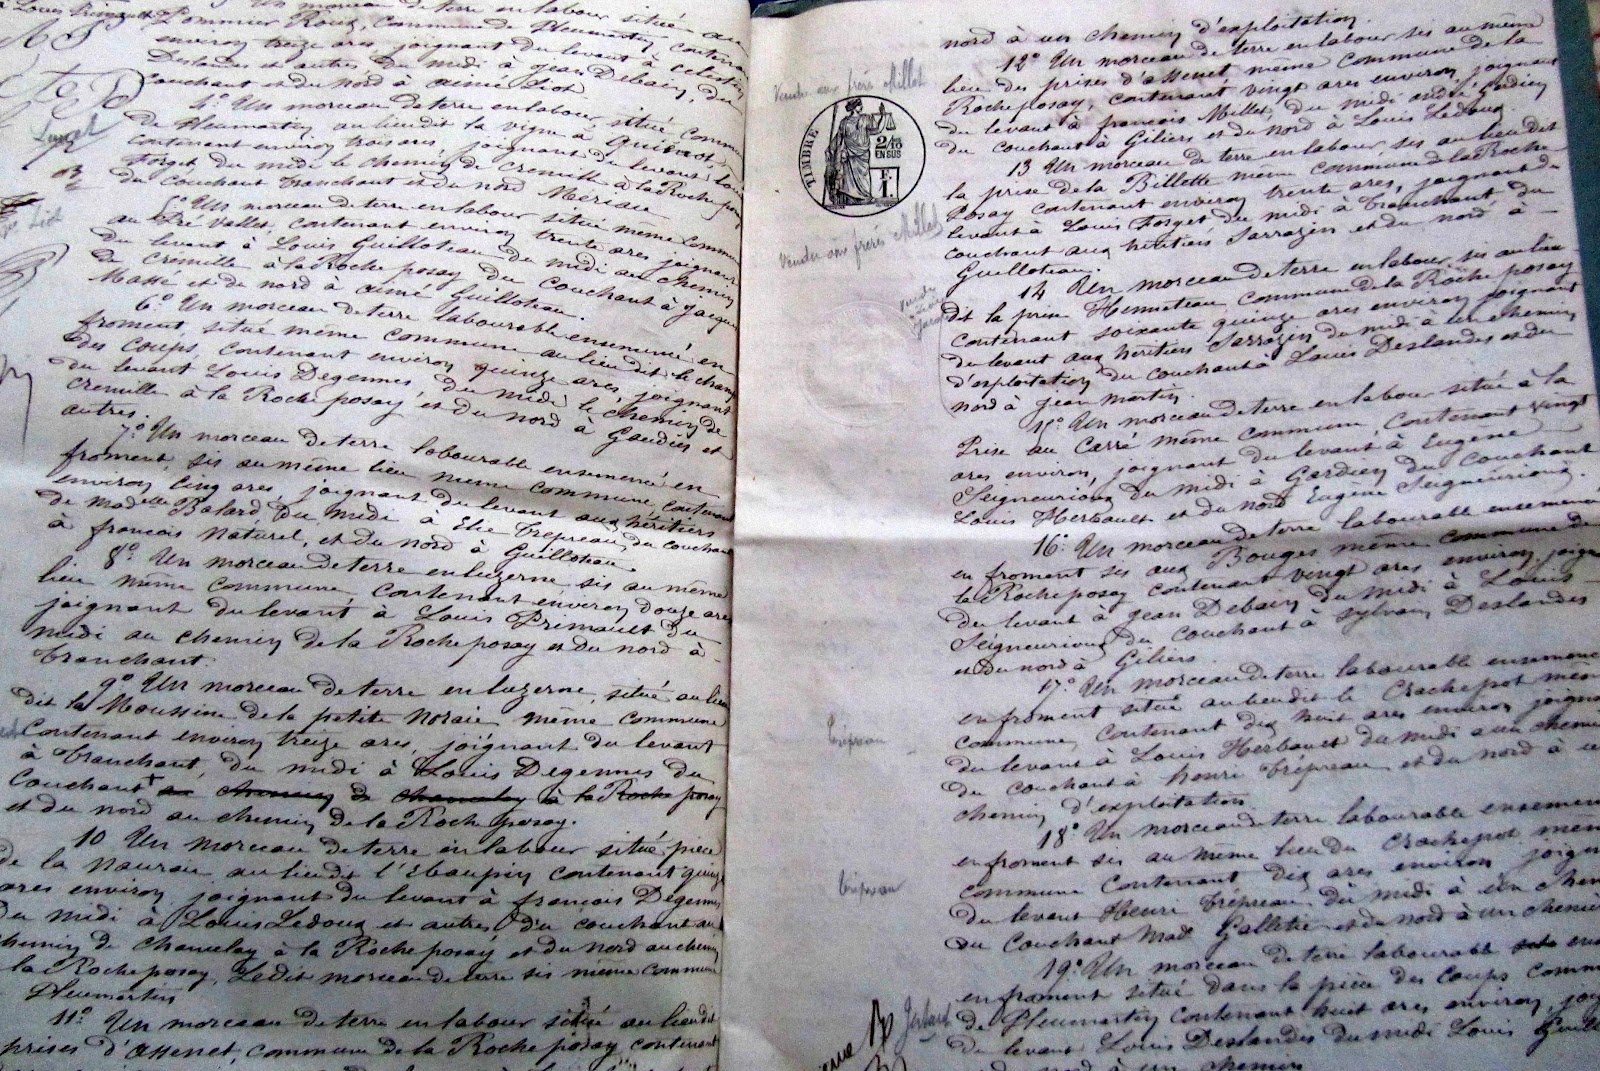 Un morceau de terre en labour situé au
Pommier Roux, commune de Pleumartin, contenant
environ treize ares, joignant du levant à Célestin
Deslandes et autres du midi à Jean Debain, du
couchant et du nord à Aimé Liot
4° Un morceau de terre en labour, situé commune
de Pleumartin au lieudit la vigne à
contenant environ trois ares joignant du levant Louis
Forget du midi le chemin de Cremille à la Roche posay
du couchant Tranchant et du nord Mériau
5° Un morceau de terre en labour situé même commune
au Pré Vallet, contenant environ trente ares joignant
du levant à Louis Guilloteau du midi au chemin
de Crémille à la Roche posay du couchant à Jacques
Massé et du nord à Aimé Guilloteau.
6° Un morceau de terre labourable ensemencé en
froment, situé même commune au lieu dit le champ
des coups, contenant environ quinze ares, joignant
du levant Louis Degennes du midi le chemin de
Cremille à la Roche posay et du nord à Gaudin et
autres.
7° Un morceau de terre labourable ensemencé en
froment, sis au même lieu même commune contenant
environ cinq ares, joignant du levant aux héritiers
de Madelle Balard du midi à Elie Trépreau, du couchant
à françois Naturel, et du nord à Guilloteau.
8° Un morceau de terre en luzerne sis au même
lieu même commune, contenant environ douze ares
joignant du levant à Louis Primault du
midi au chemin de la Roche posay et du nord à
Tranchant.
9° Un morceau de terre en luzerne, situé au lieu
dit la Moussine de la petite noraie même commune
contenant environ treize ares, joignant du levant
à Tranchant, du midi à Louis Degennes du
couchant au chemin de chamelay à la Roche posay
et du nord au chemin de la Roche posay.
10 Un morceau de terre en labour situé pièce
de la Nauraie au lieudit l'Ebaupin contenant quinze
ares environ joignant du levant à françois Degennes
du midi à Louis Ledoux et autres, du couchant au
chemin de chamelay à la Roche posay et du nord au chemin
la Roche posay, Ledit morceau de terre sis même commune
Pleumartin
11° Un morceau de terre en labour situé au lieudit
prises d'Assenet, commune de la Roche posay contenant
Liot
Vendu aux frères Millet
TIMBRE
2/10
EN SUS
1 F.
Vendu aux frères Millet
Trépreau
Trépreau
nord à un chemin d'exploitation.
12° Un morceau de terre en labour sis au même
lieu des prises d'Assenet même commune de la
Roche posay, contenant vingt ares environ, joignant
du levant à françois Millet, du midi André Gardien
du couchant à Giliers et du nord à Louis Ledoux.
13 Un morceau de terre en labour, sis au lieu dit
la prise de la Billette même commune de la Roche
Posay contenant environ trente ares, joignant du
levant à Louis Forget du midi à Tranchant du
couchant aux héritiers Sarrazin et du nord à
Guilloteau.
14 Un morceau de terre en labour, sis au lieu
dit la prise Henneteau commune de la Roche posay
contenant soixante quinze ares environ joignant
du levant aux héritiers Sarrazin du midi à un chemin
d'exploitation du couchant à Louis Deslandes et du
nord à Jean Martin.
15° Un morceau de terre en labour situé à la
Prise au Carré même commune, contenant vingt
ares environ, joignant du levant à Eugène
Seigneurioux du midi à Gardien du couchant
Louis Herbault et du nord Eugène Seigneurioux.
16° Un morceau de terre labourable ensemencé
en froment sis aux Bouges même commune de
la Roche posay contenant vingt ares environ, joignant
du levant à Jean Debain du midi à Louis
Seigneurioux du couchant à Sylvain Deslandes
et du nord à Giliers.
17° Un morceau de terre labourable ensemencé
en froment situé au lieudit le Crachepot même
commune, contenant dix huit ares environ joignant
du levant à Louis Herbault du midi à un chemin
du couchant à Henri Trépreau et du nord à un
chemin d'exploitation
18° Un morceau de terre labourable ensemencé
en froment sis au même lieu du Crachepot même
commune contenant dix ares environ joignant
du levant Henri Trépreau du midi à un chemin
du couchant Made Galletier et du nord à un chemin
19° Un morceau de terre labourable
en froment situé dans la pièce des Coups commune
de Pleumartin contenant huit ares environ, joignant
du levant Louis Deslandes du midi Louis
du nord à un chemin